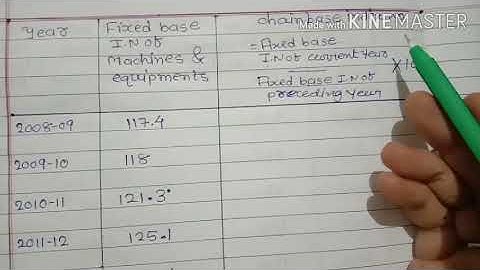 Made with KINEMASTER
Year
Fixed base
I.No of
Machines &
equipments
chainbase
= Fixed base
I.No of current Year
X 10
Fixed base I.No of
preceding Year
2008-09 117.4
2009-10 118
2010-11 121.3
2011-12 125.1